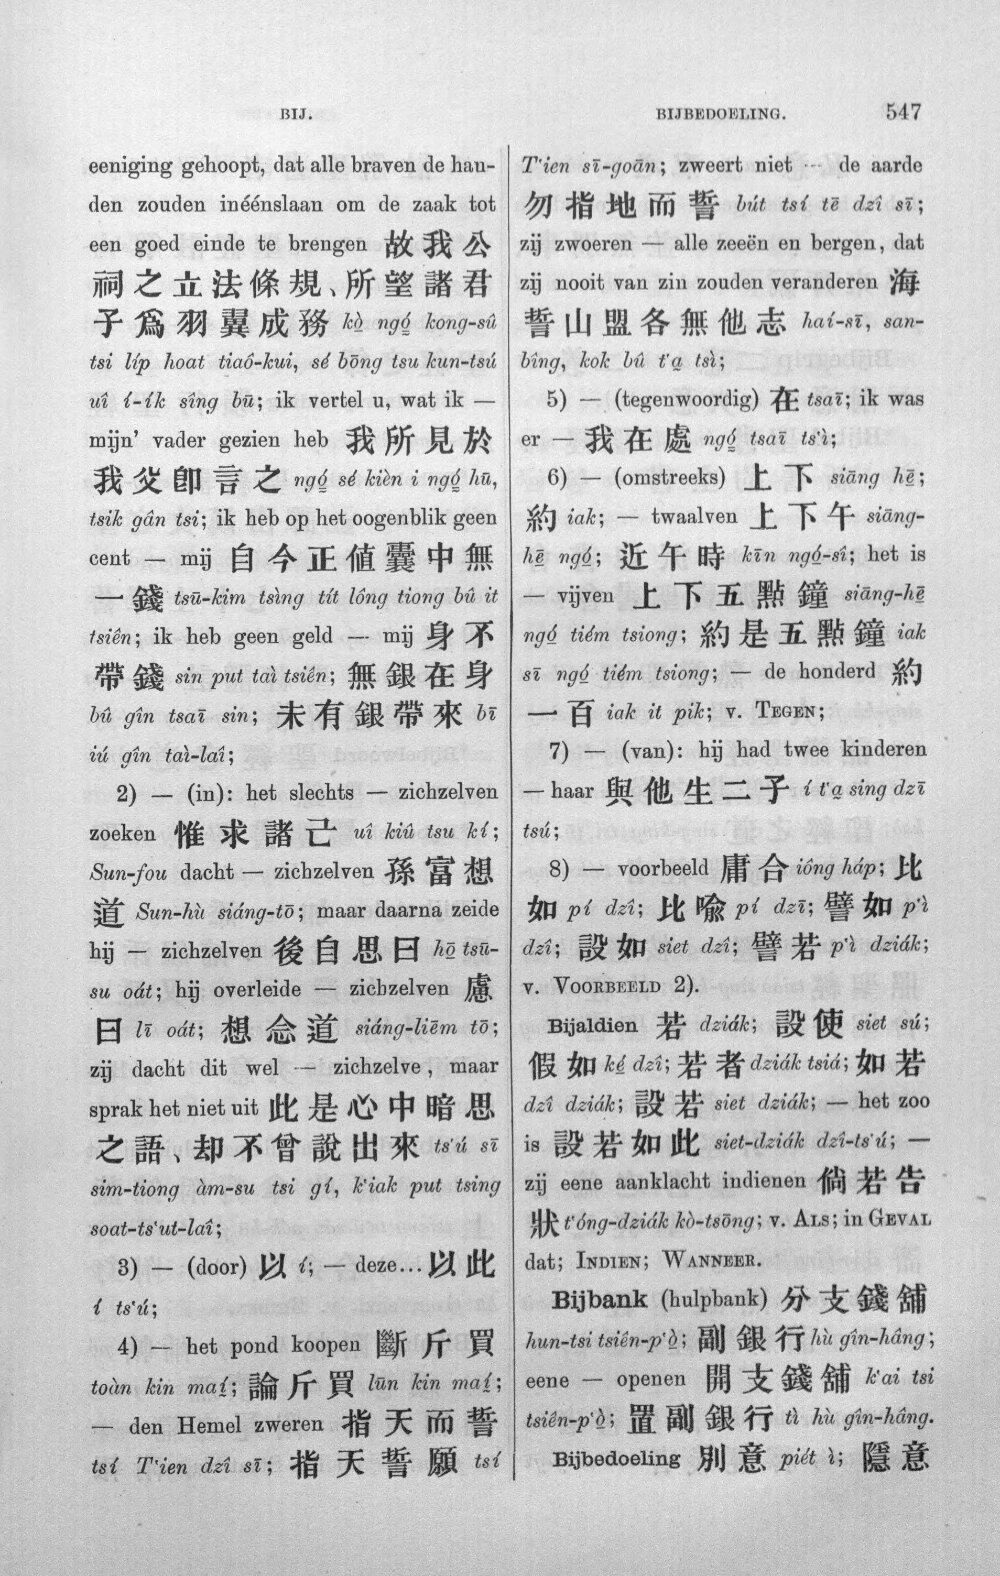 BIJ.
BIJBEDOELING.
547
eeniging gehoopt, dat alle braven de han-
den zouden inéénslaan om de zaak tot
een goed einde te brengen 故我公
祠之立法條規、所望諸君
子爲羽翼成務 kò̱ ngó̱ kong-sû
tsi líp hoat tiaô-kui, sé bōng tsu kun-tsú
uî í-ík sîng bū; ik vertel u, wat ik —
mijn’ vader gezien heb 我所見於
我父卽言之 ngó̱ sé kièn i ngó̱ hū,
tsik gân tsi; ik heb op het oogenblik geen
cent — mij 自今正値囊中無
一錢 tsū-kim tsìng tít lông tiong bû it
tsiên; ik heb geen geld — mij 身不
帶錢 sin put taì tsiên; 無銀在身
bû gîn tsaī sin; 未有銀帶來 bī
iú gîn taì-laî;
2) — (in): het slechts — zichzelven
zoeken 惟求諸己 uî kiû tsu kí;
Sun-fou dacht — zichzelven 孫富想
道 Sun-hù siáng-tō; maar daarna zeide
hij — zichzelven 後自思曰 hō̱ tsū-
su oát; hij overleide — zichzelven 慮
曰 lī oát; 想念道 siáng-liēm tō;
zij dacht dit wel — zichzelve, maar
sprak het niet uit 此是心中暗思
之語、却不曾說出來 ts‘ú sī
sim-tiong àm-su tsi gí, k‘iak put tsing
soat-ts‘ut-laî;
3) — (door) 以 í; — deze... 以此
í ts‘ú;
4) — het pond koopen 斷斤買
toàn kin maí̱; 論斤買 lūn kin maí̱;
— den Hemel zweren 指天而誓
tsí T‘ien dzî sī; 指天誓願 tsí
T‘ien sī-goān; zweert niet — de aarde
勿指地而誓 bút tsí tē dzî sī;
zij zwoeren — alle zeeën en bergen, dat
zij nooit van zin zouden veranderen 海
誓山盟各無他志 haí-sī, san-
bîng, kok bû t‘a̱ tsì;
5) — (tegenwoordig) 在 tsaī; ik was
er — 我在處 ngó̱ tsaī ts‘ì;
6) — (omstreeks) 上下 siāng hē̱;
約 iak; — twaalven 上下午 siāng-
hē̱ ngó̱; 近午時 kīn ngó̱-sî; het is
— vijven 上下五點鐘 siāng-hē̱
ngó̱ tiém tsiong; 約是五點鐘 iak
sī ngó̱ tiém tsiong; — de honderd 約
一百 iak it pik; v. TEGEN;
7) — (van): hij had twee kinderen
— haar 與他生二子 í t‘a̱ sing dzī
tsú;
8) — voorbeeld 庸合 iông háp; 比
如 pí dzî; 比喩 pí dzī; 譬如 p‘ì
dzî; 設如 siet dzî; 譬若 p‘ì dziák;
v. VOORBEELD 2).
Bijaldien 若 dziák; 設使 siet sú;
假如 ké̱ dzî; 若者 dziák tsiá; 如若
dzî dziák; 設若 siet dziák; — het zoo
is 設若如此 siet-dziák dzî-ts‘ú; —
zij eene aanklacht indienen 倘若告
狀 t‘óng-dziák kò-tsōng; v. ALS; in GEVAL
dat; INDIEN; WANNEER.
Bijbank (hulpbank) 分支錢舖
hun-tsi tsiên-p‘ò̱; 副銀行 hù gîn-hâng;
eene — openen 開支錢舖 k‘ai tsi
tsiên-p‘ò̱; 置副銀行 tì hù gîn-hâng.
Bijbedoeling 別意 piét ì; 隱意